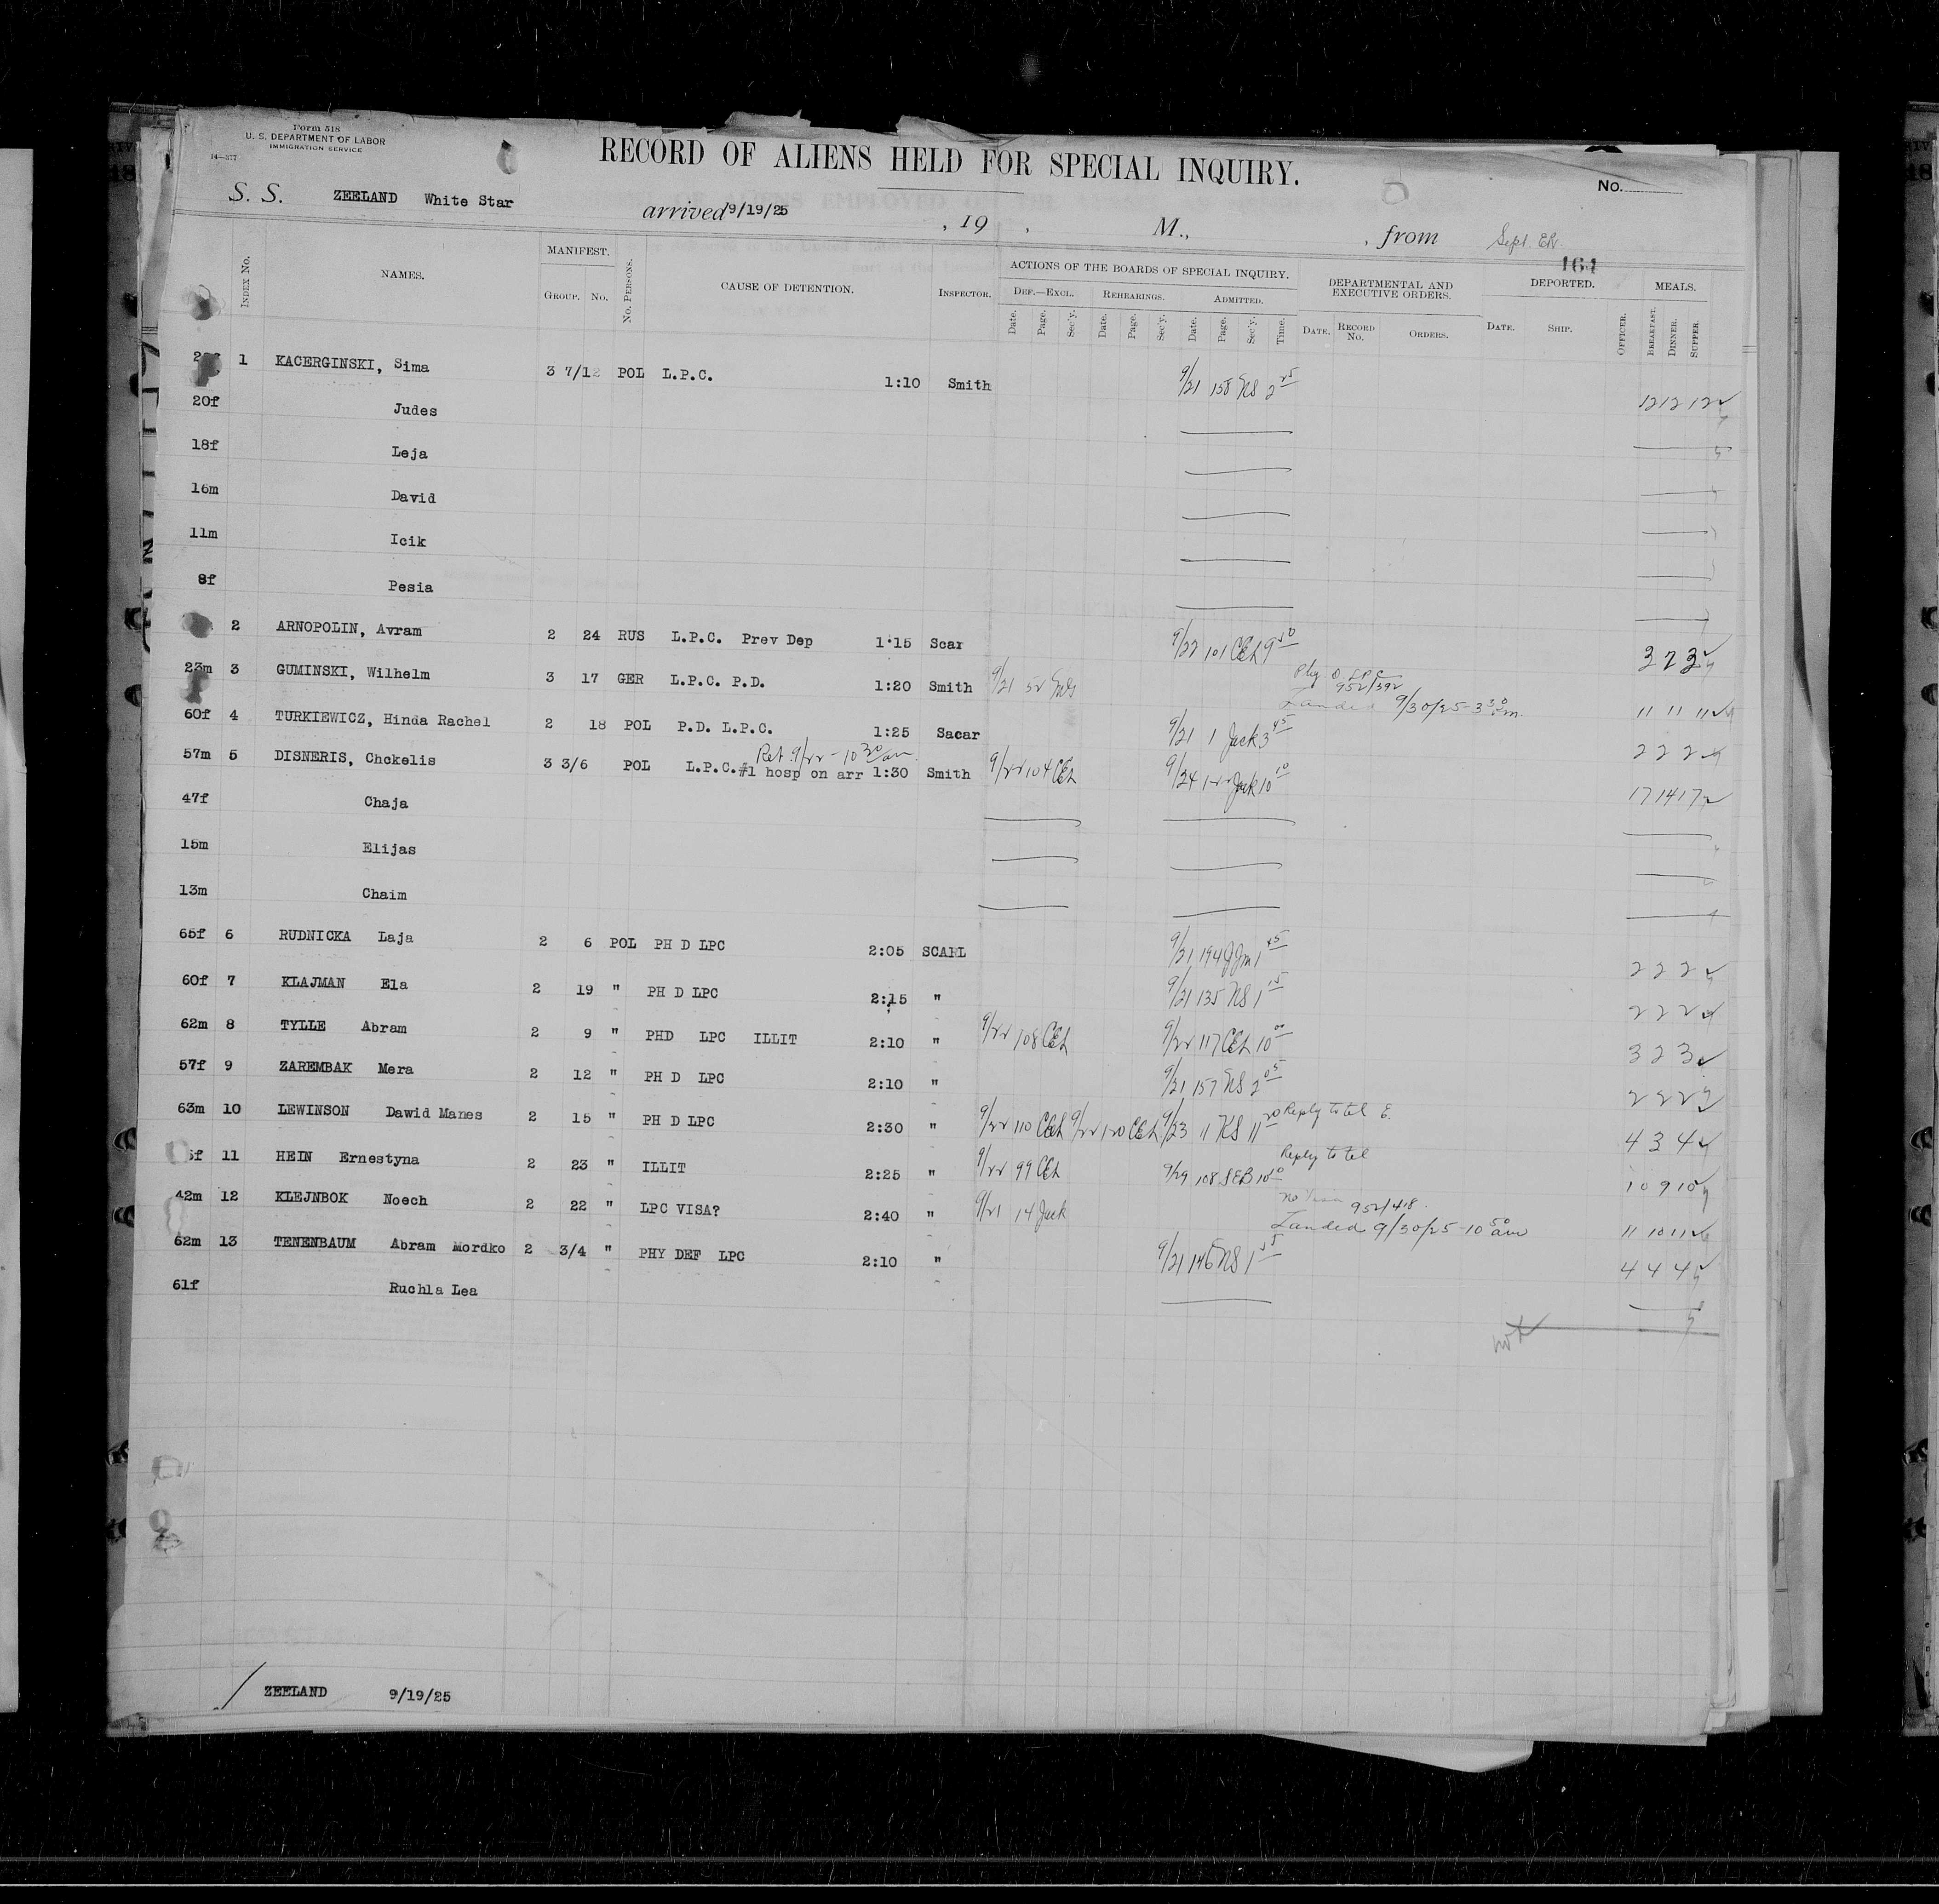 Form 518
U. S. DEPARTMENT OF LABOR
IMMIGRATION SERVICE
14—377
RECORD OF ALIENS HELD FOR SPECIAL INQUIRY.
No.
S. S. ZEELAND White Star arrived 9/19/25 , 19 , M., , from Sept. ER.
164
INDEX No. NAMES. MANIFEST. GROUP. No. No. PERSONS. CAUSE OF DETENTION. INSPECTOR. ACTIONS OF THE BOARDS OF SPECIAL INQUIRY. DEPARTMENTAL AND EXECUTIVE ORDERS. DEPORTED. MEALS.
DEF.—EXCL. REHEARINGS. ADMITTED.
Date. Page. Sec'y. Date. Page. Sec'y. Date. Page. Sec'y. Time. DATE. RECORD No. ORDERS. DATE. SHIP. OFFICER. BREAKFAST. DINNER. SUPPER.
1 KACERGINSKI, Sima 3 7/12 POL L.P.C. 1:10 Smith 9/21 158 NS 2 25 12 12 12
20f Judes
18f Leja
16m David
11m Icik
8f Pesia
2 ARNOPOLIN, Avram 2 24 RUS L.P.C. Prev Dep 1:15 Scar 9/22 101 CEL 9 50 3 2 3
23m 3 GUMINSKI, Wilhelm 3 17 GER L.P.C. P.D. 1:20 Smith 9/21 52 Phy. D. LPC 952/392
Landed 9/30/25-3 30 pm. 11 11 11
60f 4 TURKIEWICZ, Hinda Rachel 2 18 POL P.D. L.P.C. 1:25 Sacar 9/21 1 Jack 3 45 2 2 2
Ret. 9/22 - 10 30 am
57m 5 DISNERIS, Chckelis 3 3/6 POL L.P.C.#1 hosp on arr 1:30 Smith 9/22 104 CEL 9/24 122 Jack 10 10 17 14 17
47f Chaja
15m Elijas
13m Chaim
65f 6 RUDNICKA Laja 2 6 POL PH D LPC 2:05 SCARL 9/21 194 JJM 1 45 2 2 2
60f 7 KLAJMAN Ela 2 19 " PH D LPC 2:15 " 9/21 135 NS 1 15 2 2 2
62m 8 TYLLE Abram 2 9 " PHD LPC ILLIT 2:10 " 9/22 108 CEL 9/22 117 CEL 10 00 3 2 3
57f 9 ZAREMBAK Mera 2 12 " PH D LPC 2:10 " 9/21 157 NS 2 05 2 2 2
63m 10 LEWINSON Dawid Manes 2 15 " PH D LPC 2:30 " 9/22 110 CEL 9/22 120 CEL 9/23 11 KS 11 20 Reply to tel E. 4 3 4
11 HEIN Ernestyna 2 23 " ILLIT 2:25 " 9/22 99 CEL 9/29 108 SEB 10 50 Reply to tel 10 9 10
42m 12 KLEJNBOK Noech 2 22 " LPC VISA? 2:40 " 9/21 14 Jack no Visa 952/418
Landed 9/30/25-10 50 am 11 10 11
62m 13 TENENBAUM Abram Mordko 2 3/4 " PHY DEF LPC 2:10 " 9/21 146 NS 1 35 4 4 4
61f Ruchla Lea
/ ZEELAND 9/19/25